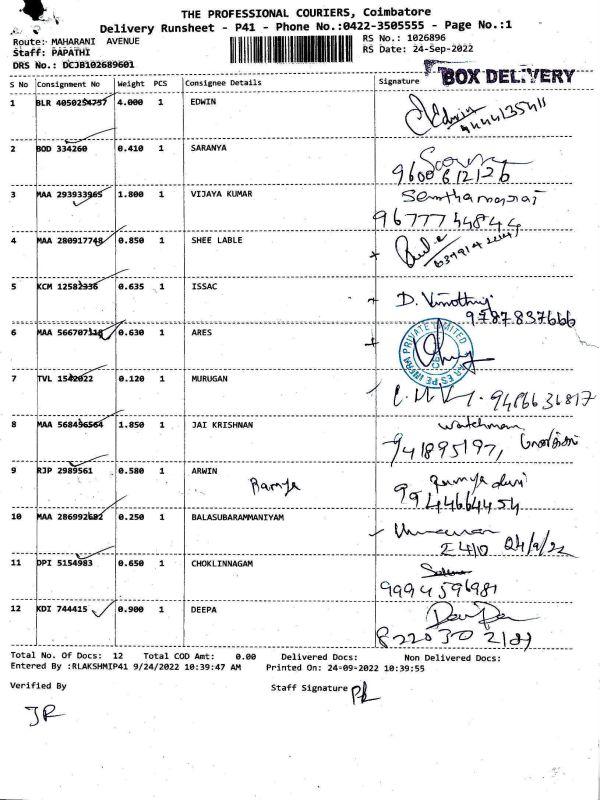 THE PROFESSIONAL COURIERS, Coimbatore
Delivery Runsheet - P41 - Phone No.:0422-3505555 - Page No.:1
Route: MAHARANI AVENUE
RS No.: 1026896
Staff: PAPATHI
RS Date: 24-Sep-2022
DRS No.: DCJB102689601
BOX DELIVERY
S No Consignment No Weight PCS Consignee Details Signature
1 BLR 4050254757 4.000 1 EDWIN Edwin
9444135411
2 BOD 334260 0.410 1 SARANYA
9600612126
3 MAA 293933965 1.800 1 VIJAYA KUMAR
9677734844
4 MAA 280917748 0.850 1 SHEE LABLE
5 KCM 12582336 0.635 1 ISSAC D.
9787837666
6 MAA 566707118 0.630 1 ARES PRIVATE LIMITED
7 TVL 1542022 0.120 1 MURUGAN 9486636817
8 MAA 568456564 1.850 1 JAI KRISHNAN Watchman
941895197,
9 RJP 2989561 0.580 1 ARWIN Ramya
9944664454
10 MAA 286992682 0.250 1 BALASUBARAMMANIYAM
24/9/22
11 DPI 5154983 0.650 1 CHOKLINNAGAM
9994596981
12 KDI 744415 0.900 1 DEEPA
8220302181
Total No. Of Docs: 12 Total COD Amt: 0.00 Delivered Docs: Non Delivered Docs:
Entered By :RLAKSHMIP41 9/24/2022 10:39:47 AM Printed On: 24-09-2022 10:39:55
Verified By Staff Signature
JR